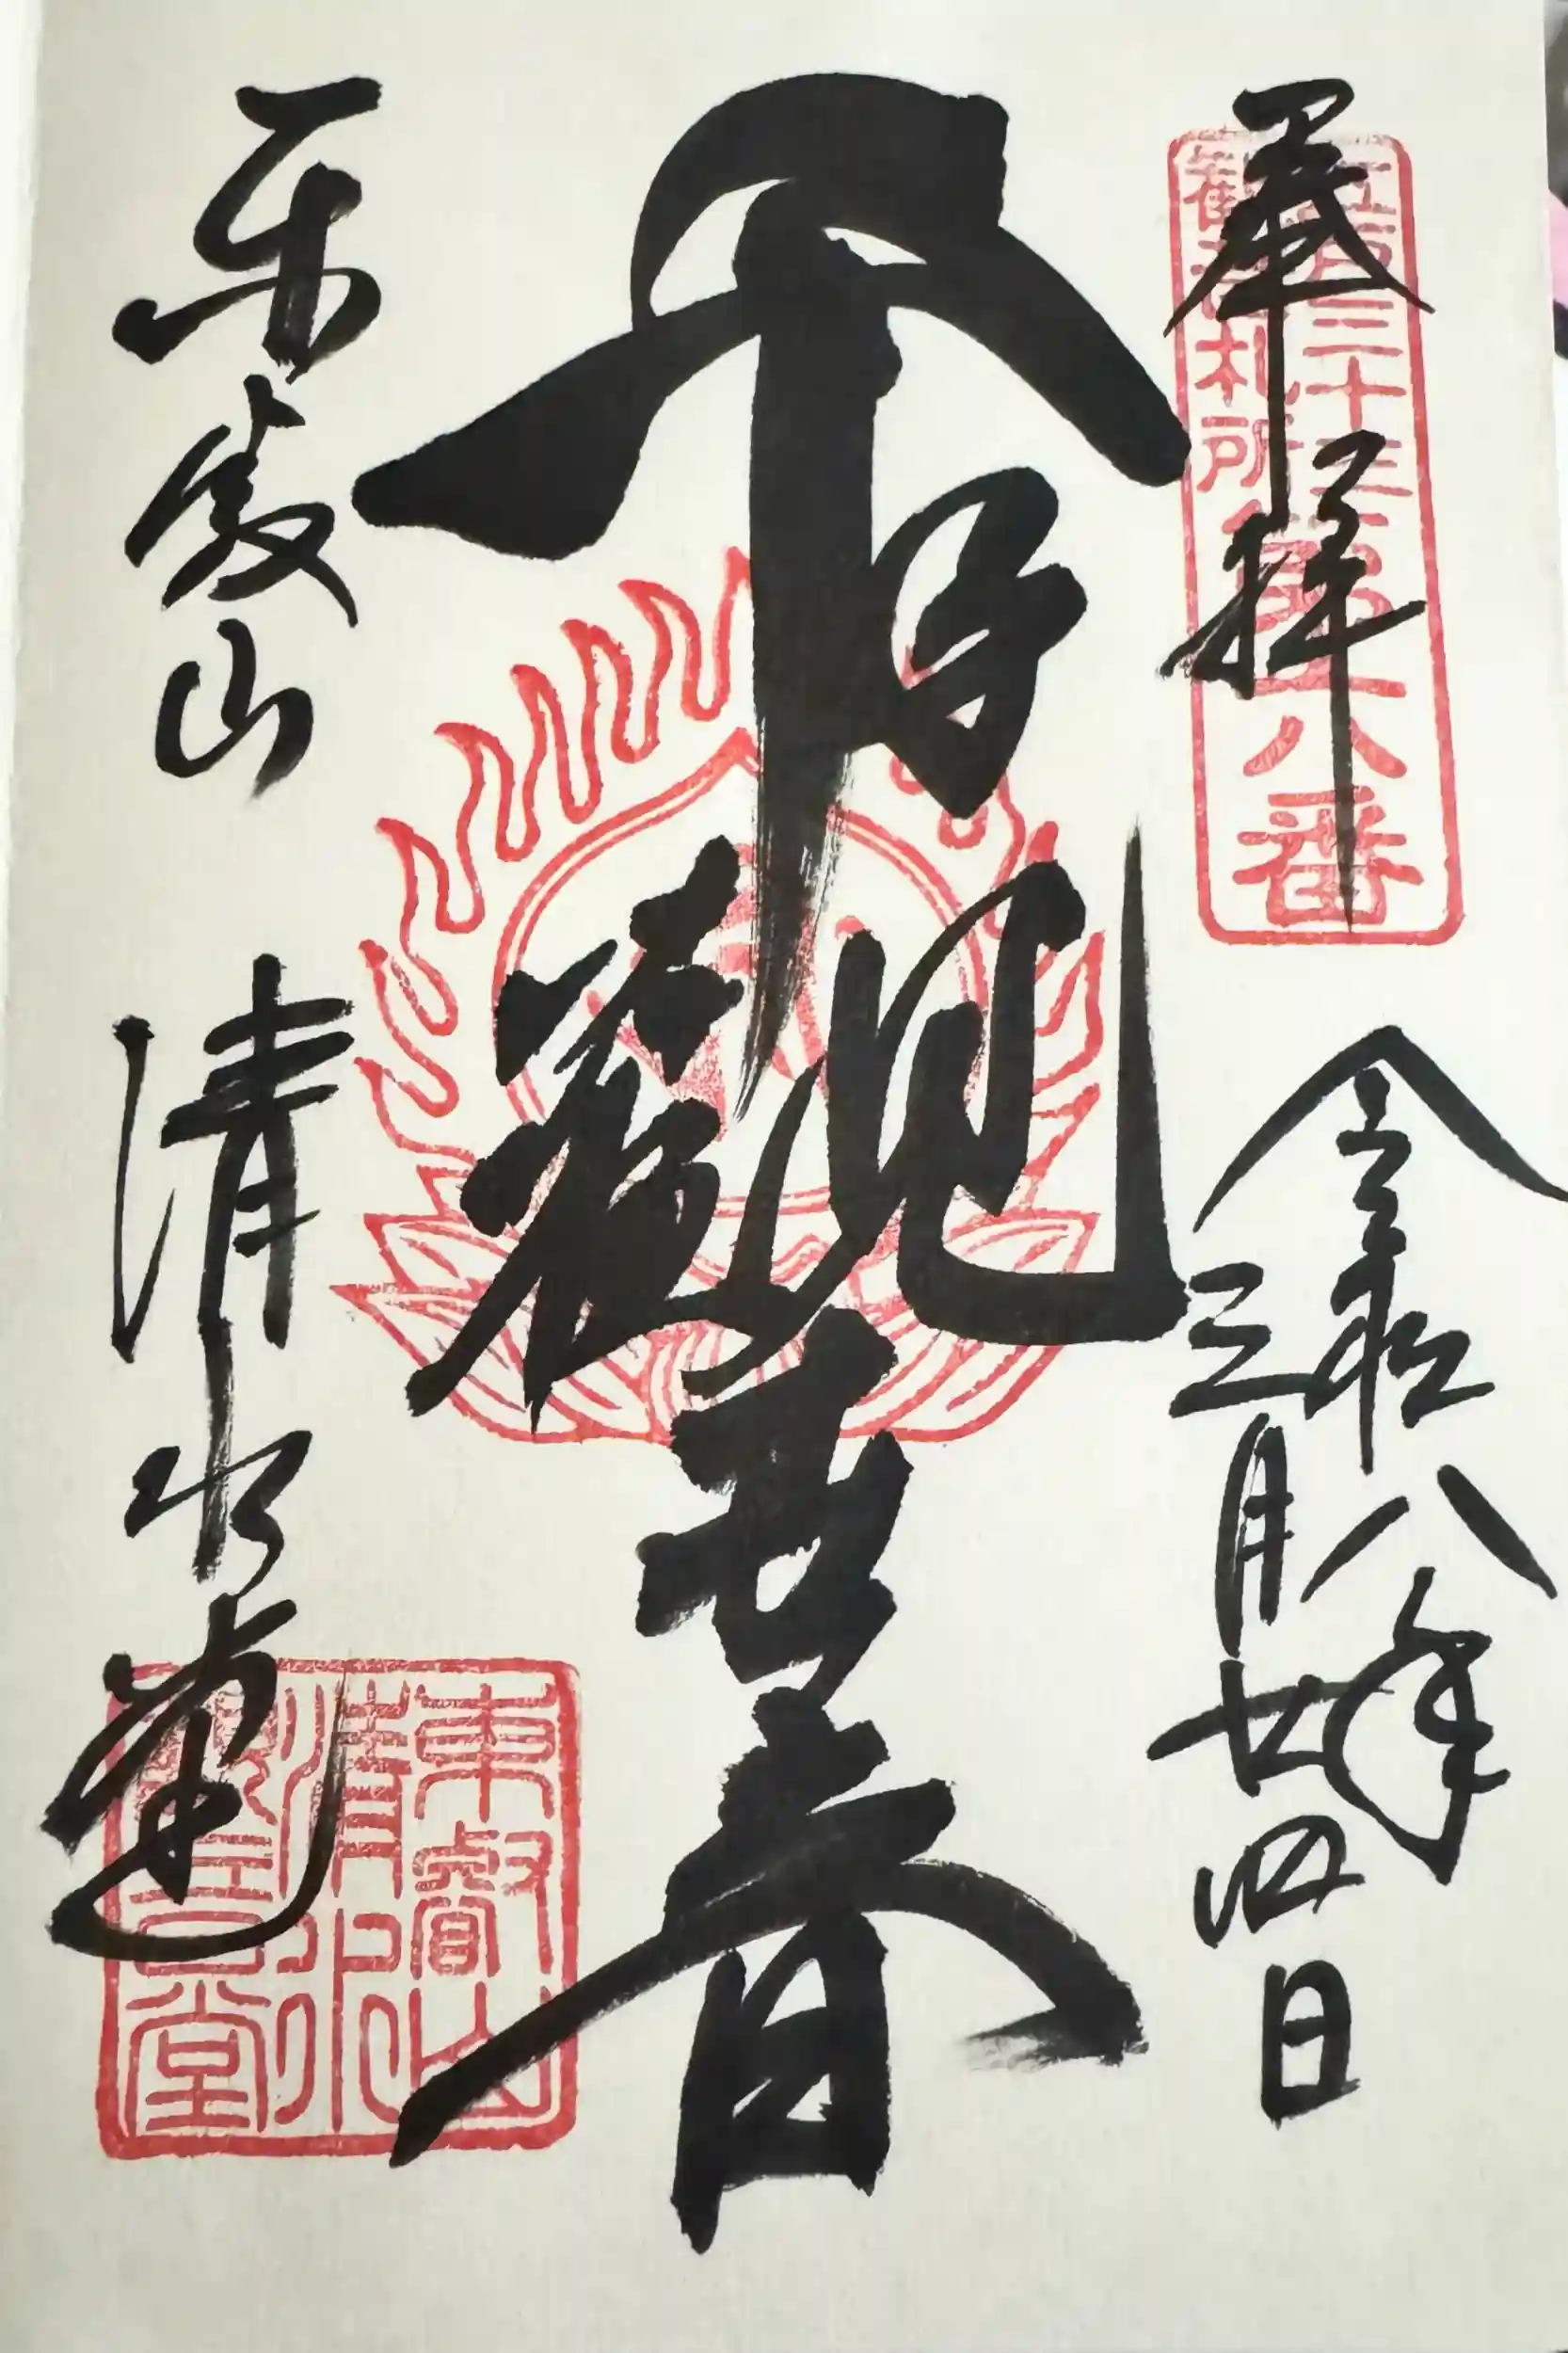 奉拝
江戸三十三
観音札所
第六番
令和八年
三月廿四日
千手観世音
東叡山 清水堂
東叡山
清水
観音堂